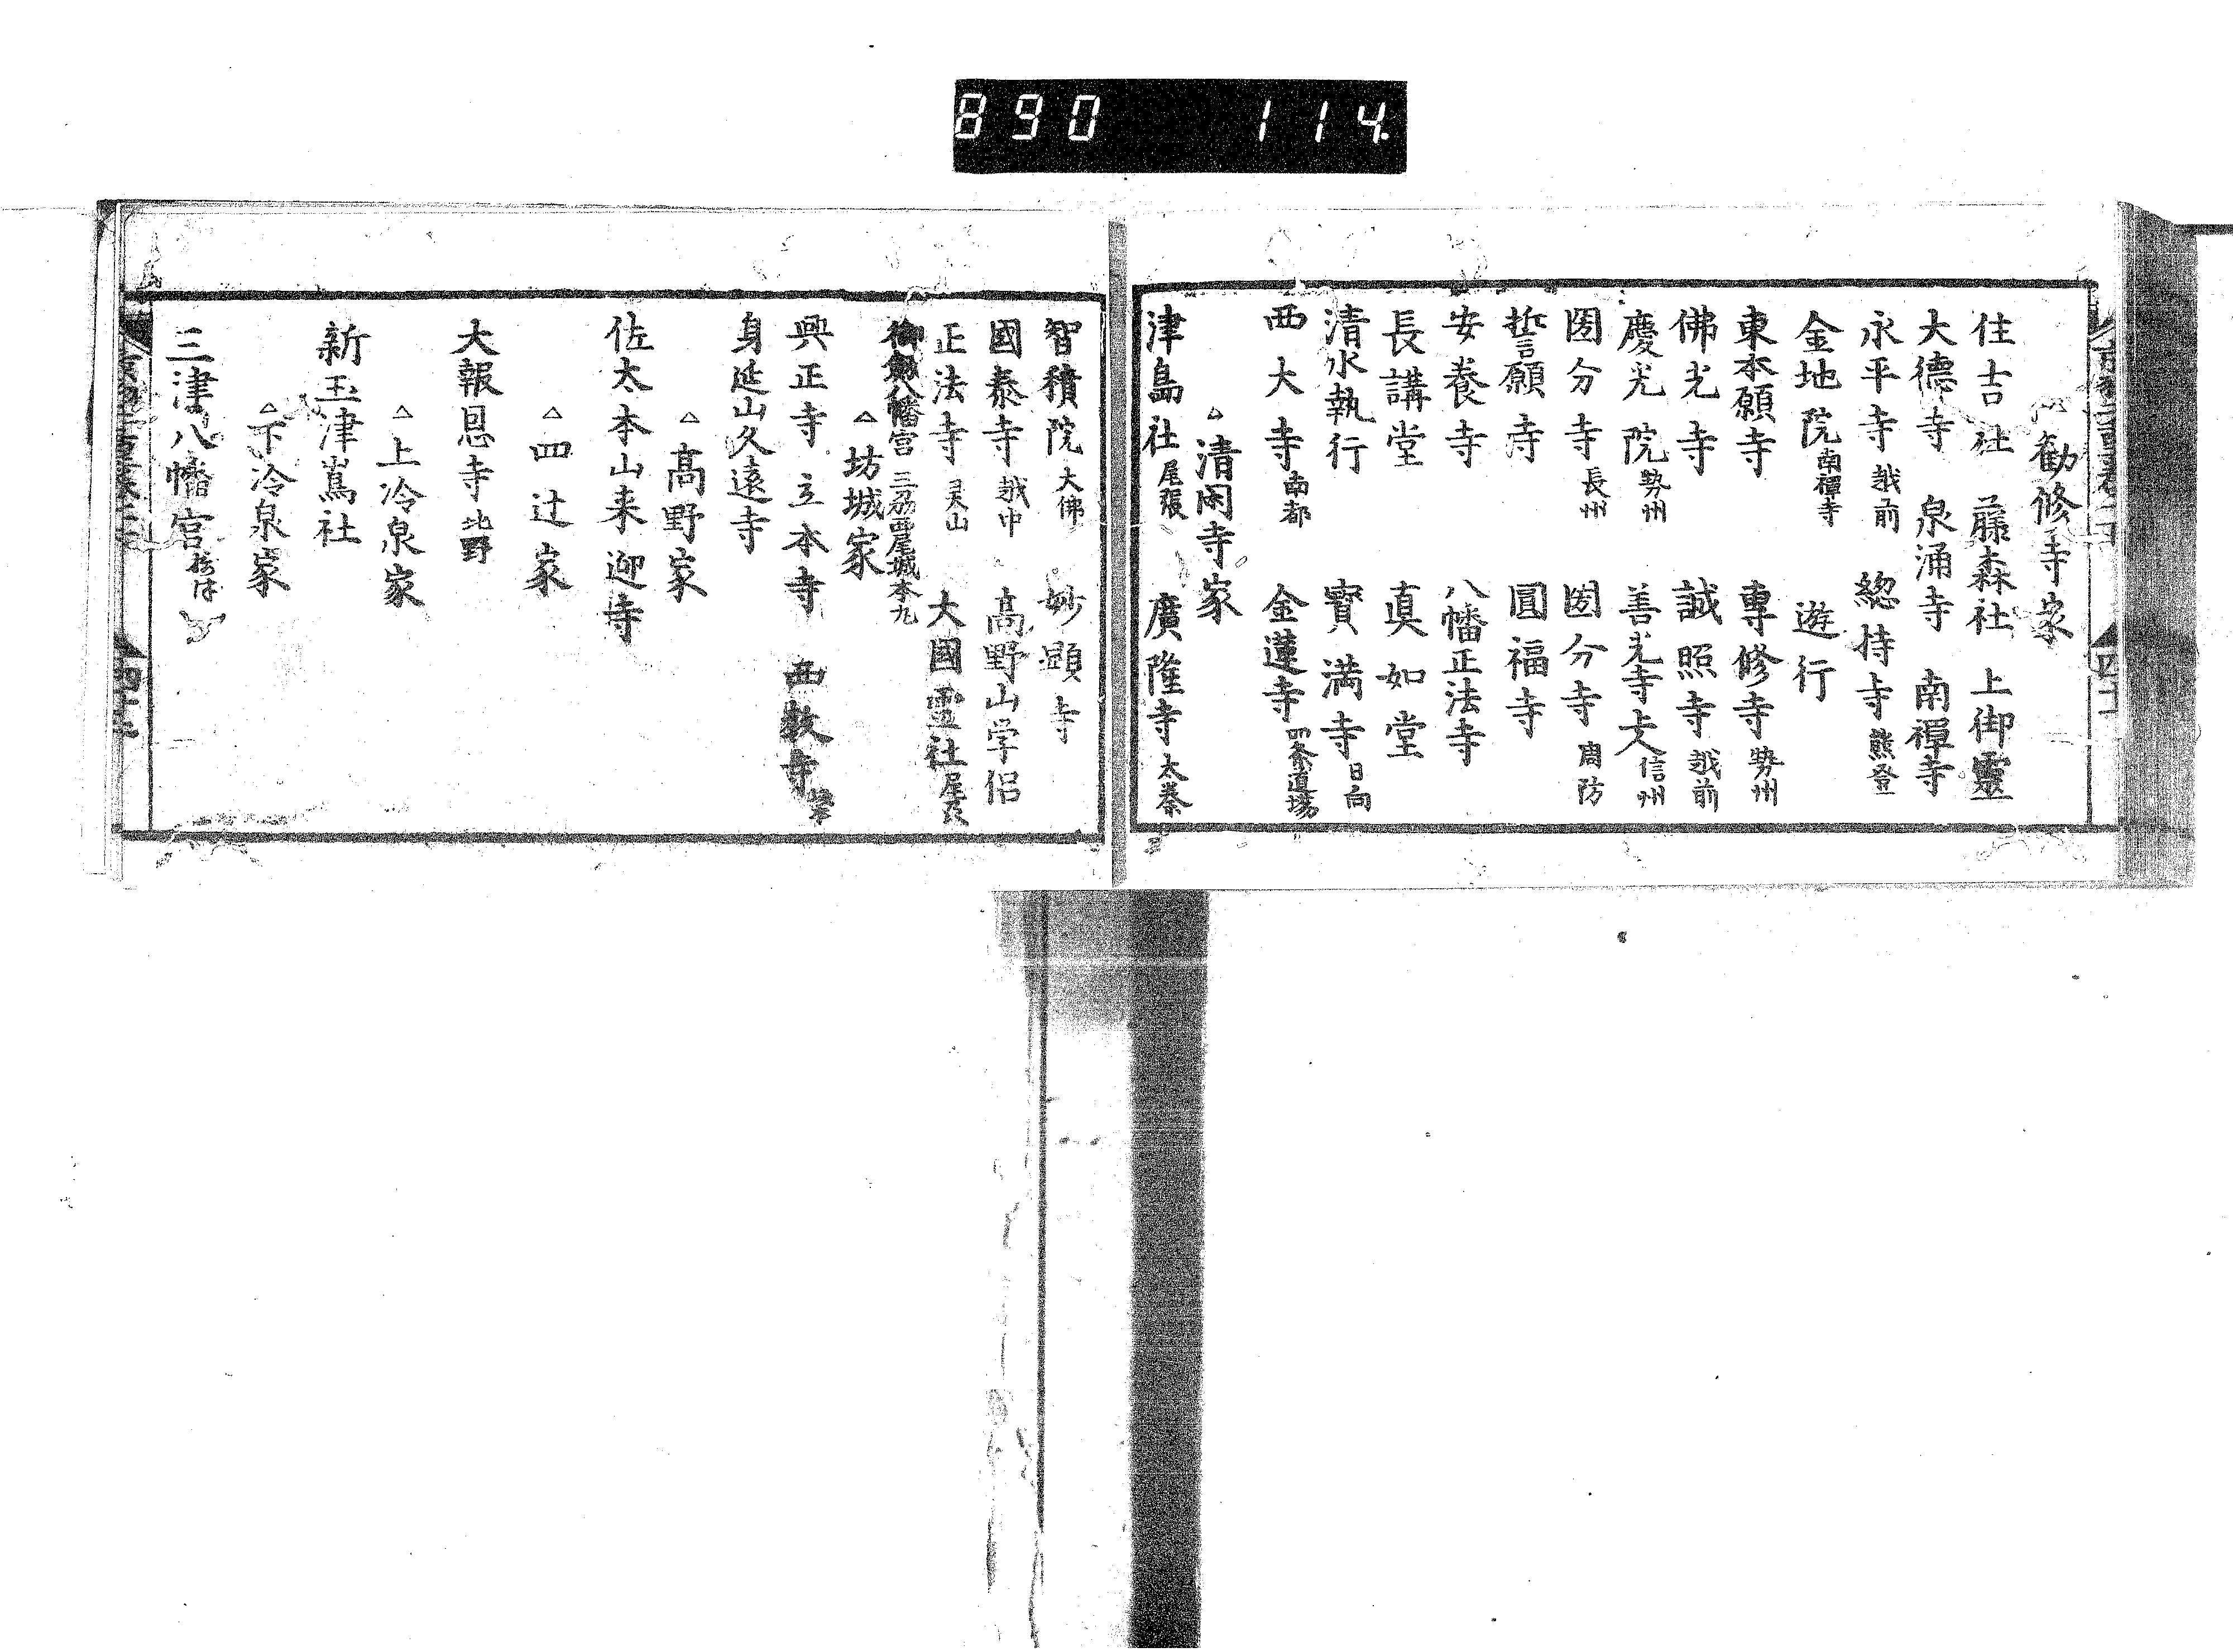 890 114
勧修寺家
住吉社 藤森社 上御靈
大德寺 泉涌寺 南禪寺
永平寺 越前 總持寺 熊登
金地院 南禪寺 遊行
東本願寺 專修寺 勢州
佛光寺 誠照寺 越前
慶光院 勢州 善光寺大 信州
圀分寺 長州 圀分寺 周防
誓願寺 圓福寺
安養寺 八幡正法寺
長講堂 真如堂
清水執行 寶満寺 日向
西大寺 南都 金蓮寺 四条道場
△清閑寺家
津島社 尾張 廣隆寺 太秦
智積院 大佛 妙顕寺
國泰寺 越中 高野山学侶
正法寺 灵山 大國霊社 尾
御劔八幡宮 三州西尾城本丸
△坊城家
興正寺 立本寺 西教寺
△高野家
身延山久遠寺
佐太本山来迎寺
△四辻家
大報恩寺 北野
△上冷泉家
新玉津嶌社
△下冷泉家
三津八幡宮